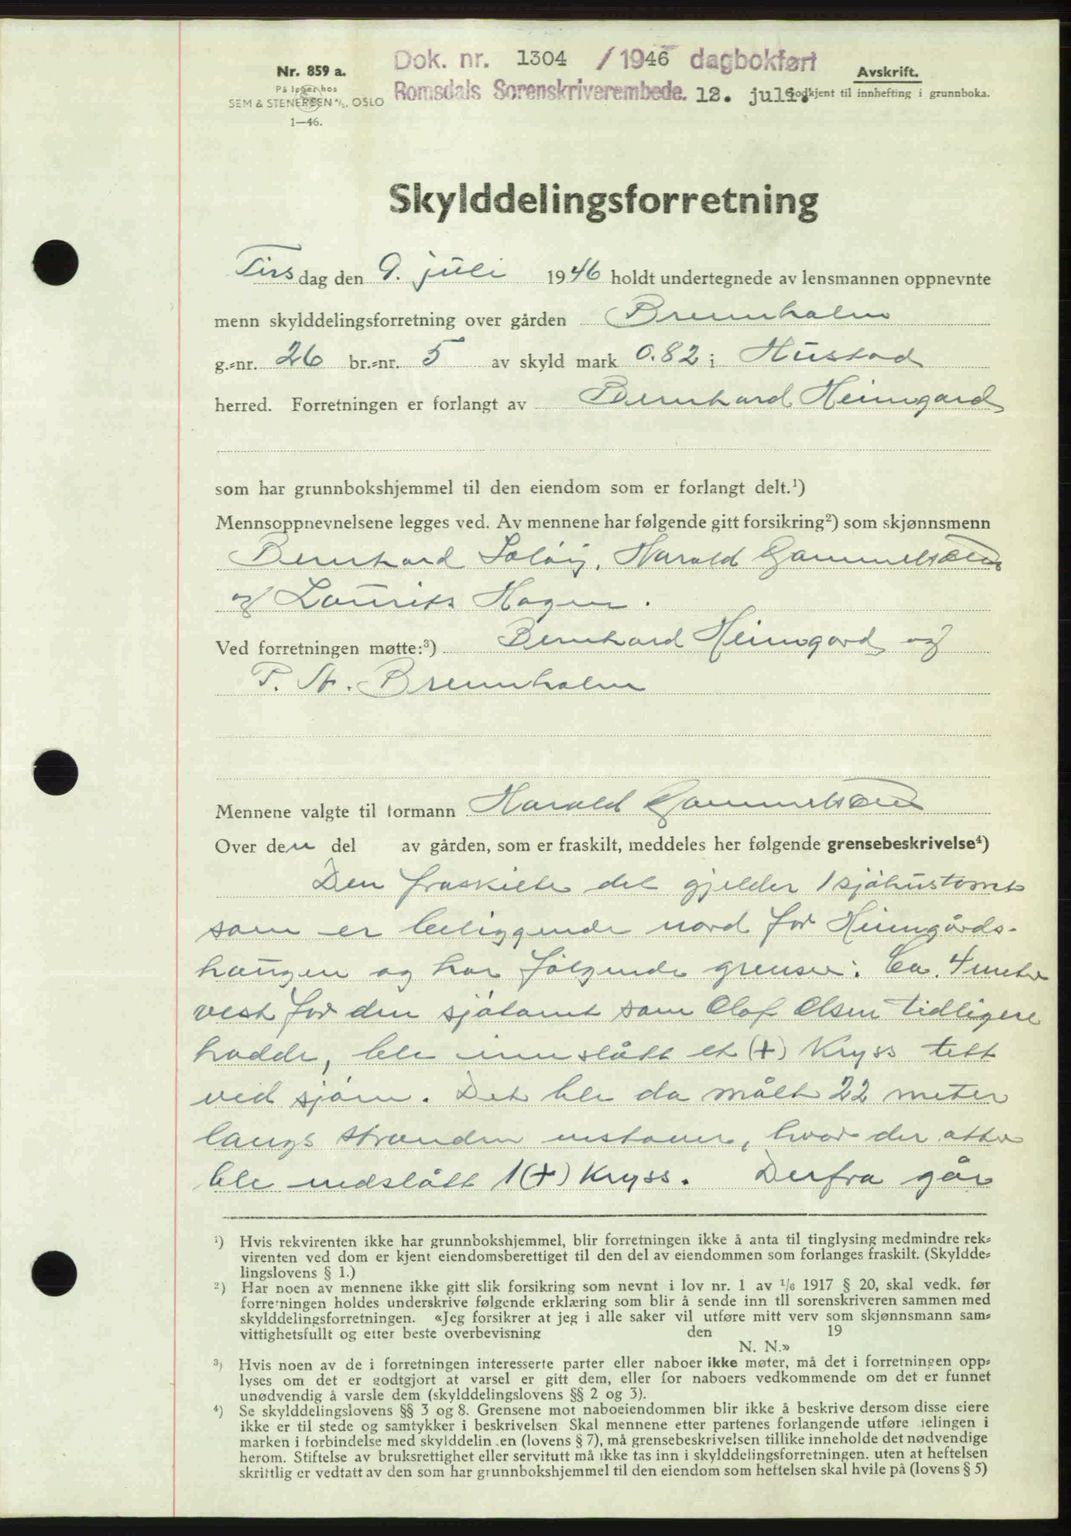 Dok. nr. 1304 / 1946 dagbokført
Romsdals Sorenskriverembede. 12. juli.
Nr. 859 a.
På lager hos
SEM & STENERSEN A/S, OSLO
1—46.
Avskrift.
Godkjent til innhefting i grunnboka.
Skylddelingsforretning
Tirsdag den 9. juli 1946 holdt undertegnede av lensmannen oppnevnte
menn skylddelingsforretning over gården Brennholm
g.-nr. 26 br.-nr. 5 av skyld mark 0.82 i Hustad
herred. Forretningen er forlangt av Bernhard Heimgard
som har grunnbokshjemmel til den eiendom som er forlangt delt.¹)
Mennsoppnevnelsene legges ved. Av mennene har følgende gitt forsikring²) som skjønnsmenn
Bernhard Harald Gammelsæter
og Laurits Hagen.
Ved forretningen møtte:³) Bernhard Heimgard og
P. St. Brennholm
Mennene valgte til formann Harald Gammelsæter
Over den del av gården, som er fraskilt, meddeles her følgende grensebeskrivelse⁴)
Den fraskilte del gjelder 1 sjøhustomt
som er beliggende nord for Heimgårds-
haugen og har følgende grenser: Ca. 4 meter
vest for den sjøtomt som Olaf Olsen tidligere
hadde, ble innslått et (+) Kryss tett
ved sjøen. Det ble da målt 22 meter
langs stranden vestover, hvor der atter
ble nedslått 1 (+) Kryss. Derfra går
¹) Hvis rekvirenten ikke har grunnbokshjemmel, blir forretningen ikke å anta til tinglysing medmindre rek-
virenten ved dom er kjent eiendomsberettiget til den del av eiendommen som forlanges fraskilt. (Skyldde-
lingslovens § 1.)
²) Har noen av mennene ikke gitt slik forsikring som nevnt i lov nr. 1 av 1/6 1917 § 20, skal vedk. før
forretningen holdes underskrive følgende erklæring som blir å sende inn til sorenskriveren sammen med
skylddelingsforretningen. «Jeg forsikrer at jeg i alle saker vil utføre mitt verv som skjønnsmann sam-
vittighetsfullt og etter beste overbevisning den 19
N. N.»
³) Hvis noen av de i forretningen interesserte parter eller naboer ikke møter, må det i forretningen opp-
lyses om det er godtgjort at varsel er gitt dem, eller for naboers vedkommende om det er funnet
unødvendig å varsle dem (skylddelingslovens §§ 2 og 3).
⁴) Se skylddelingslovens §§ 3 og 8. Grensene mot naboeiendommen blir ikke å beskrive dersom disse eiere
ikke er til stede og samtykker i beskrivelsen Skal mennene etter partenes forlangende utføre delingen i
marken i forbindelse med skylddelingen (lovens § 7), må grensebeskrivelsen tillike inneholde det nødvendige
herom. Stiftelse av bruksrettighet eller servitutt må ikke tas inn i skylddelingsforretningen. uten at heftelsen
skriftlig er vedtatt av den som har grunnbokshjemmel til den eiendom som heftelsen skal hvile på (lovens § 5)